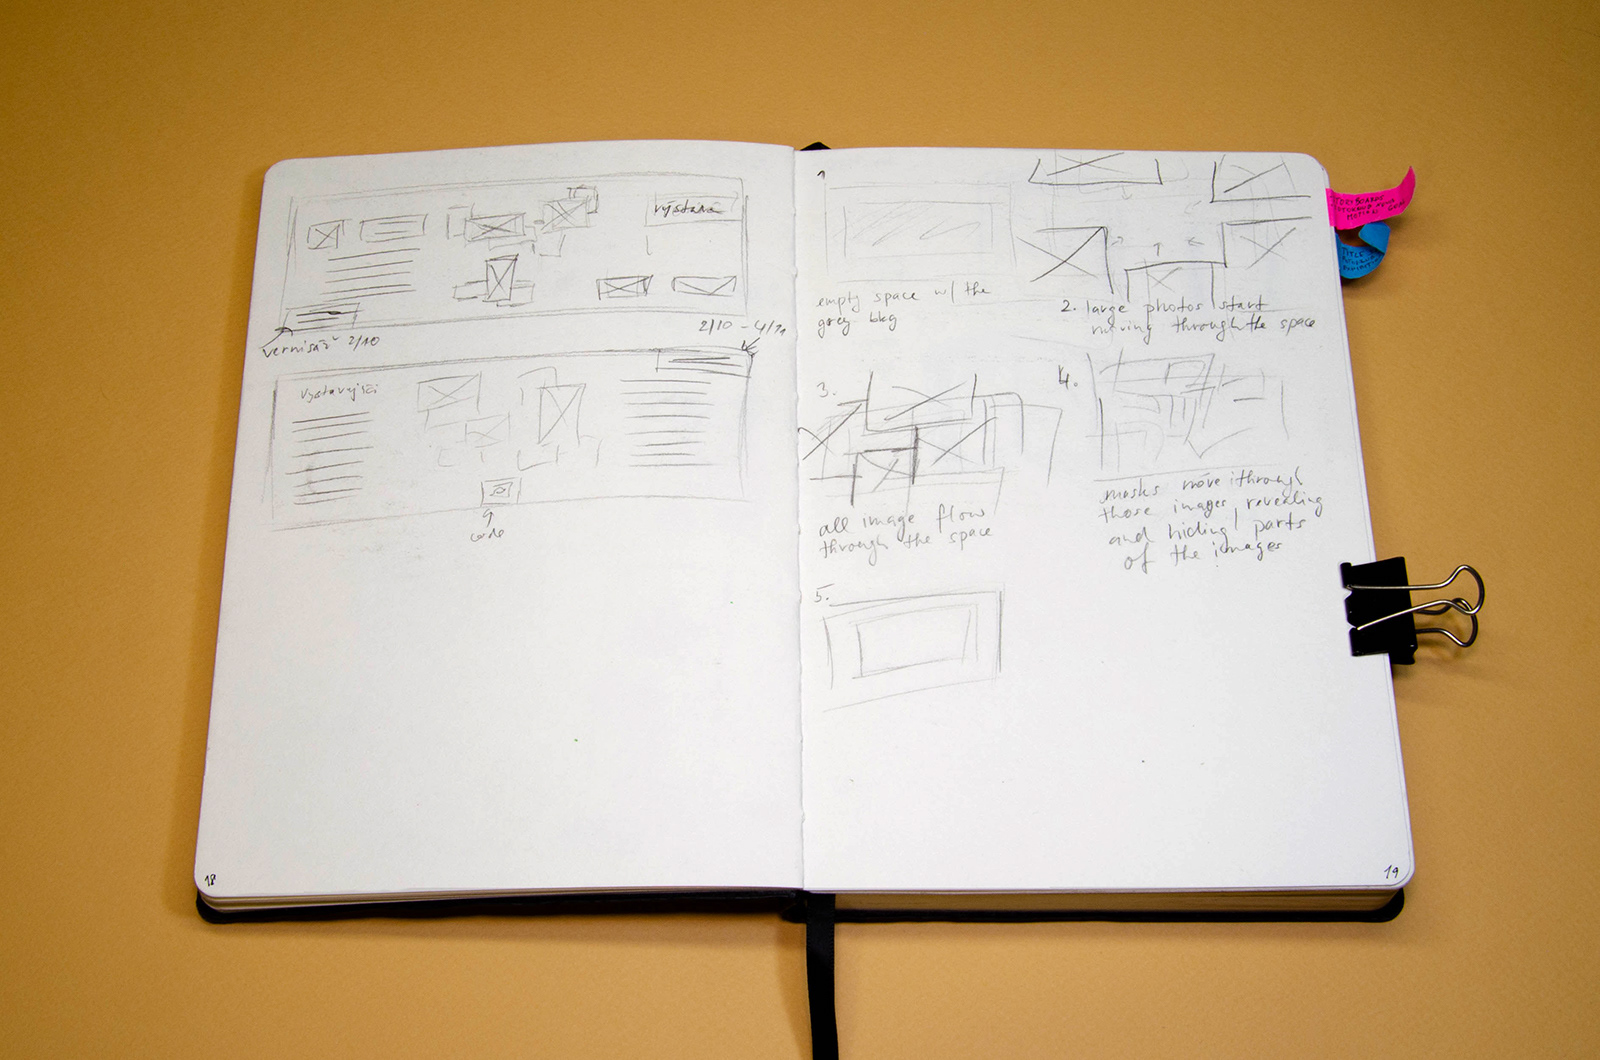 výstava
vernisáž 2/10
2/10 - 4/11
vystavující
code
18
1
empty space w/ the
grey bkg
2. large photos start
moving through the space
3.
all image flow
through the space
4.
masks move through
those images, revealing
and hiding parts
of the images
5.
19
STORYBOARDS